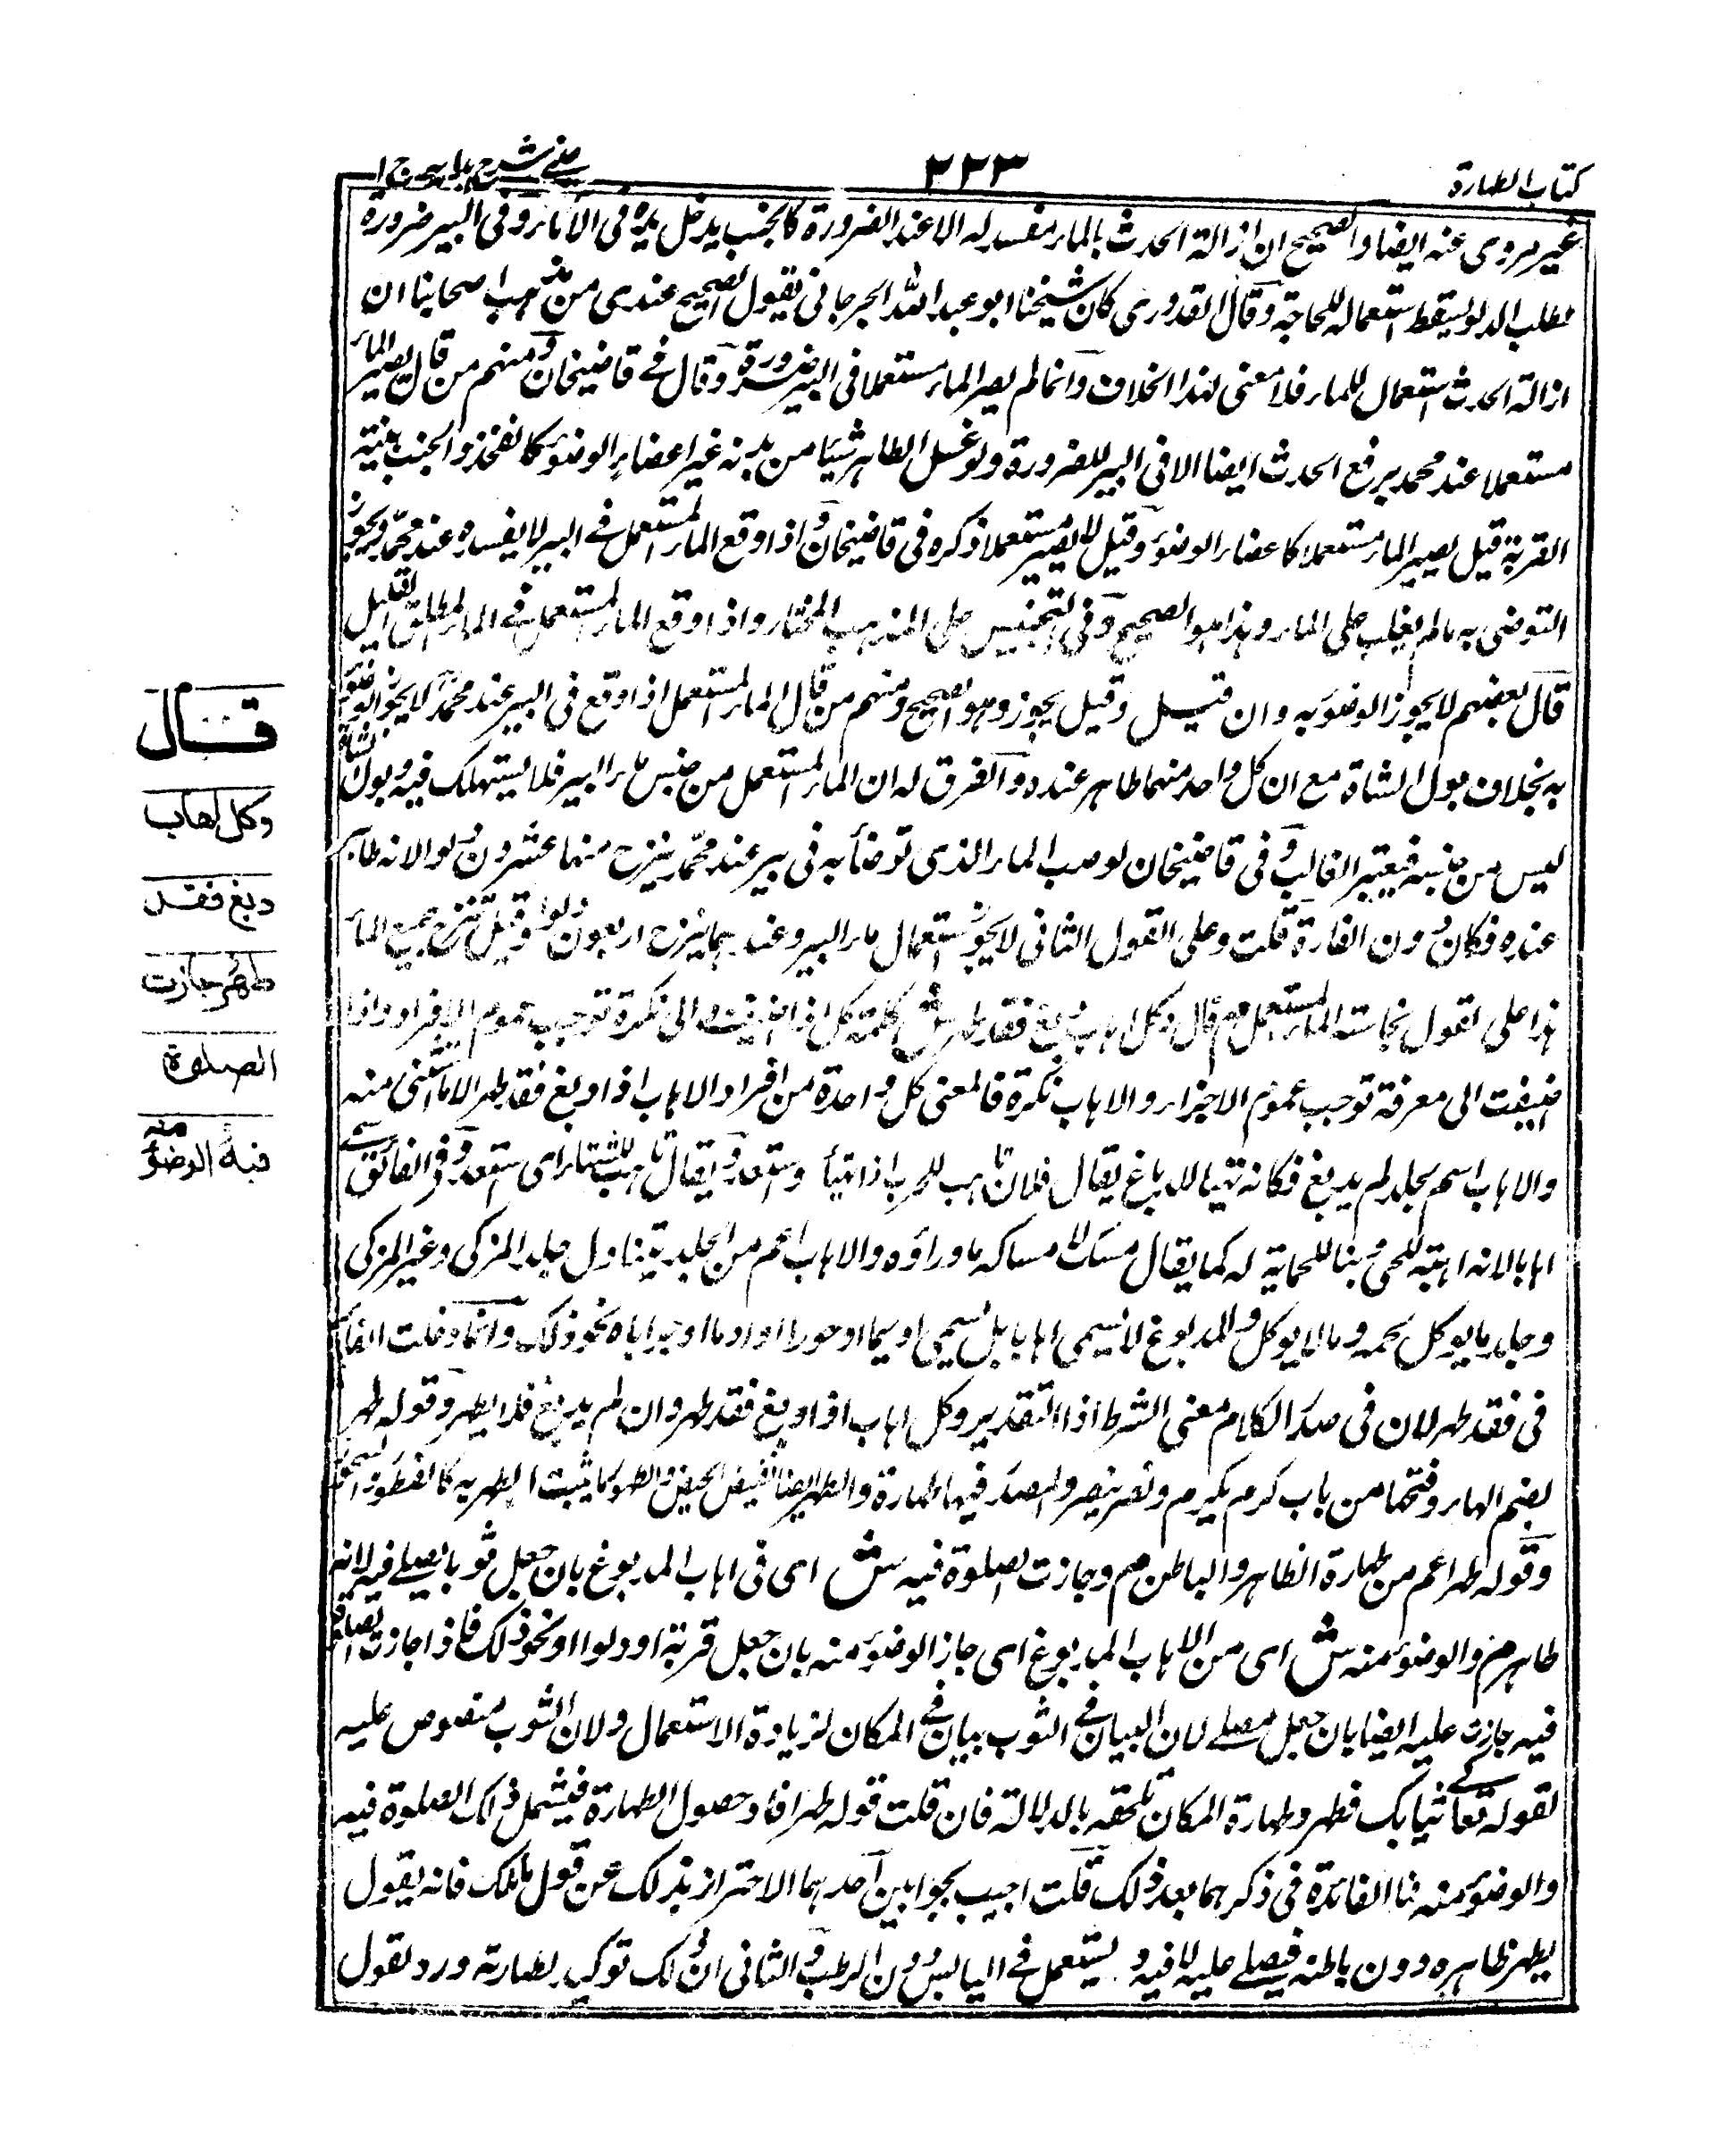 كتاب الطهارة
٢٢٣
عينى شرح هدايه ج ١
غير مروى عنه ايضا والصحيح ان ازالة الحدث بالماء مفسد له الا عند الضرورة كالجنب يدخل يده فى الاناء وفى البير ضرورة
لطلب الدلو يسقط استعماله للحاجة وقال القدورى كان شيخنا ابو عبد الله الجرجانى يقول الصحيح عندى من مذهب اصحابنا ان
ازالة الحدث استعمال للماء فلا معنى لهذا الخلاف وانما لم يصر الماء مستعملا فى البير ضرورة وقال فى قاضيخان ومنهم من قال يصير الماء
مستعملا عند محمد برفع الحدث ايضا الا فى البير للضرورة ولو غسل الطاهر شيئا من بدنه غير اعضاء الوضوء كالفخذ والجنب بنية
القربة قيل يصير الماء مستعملا كاعضاء الوضوء وقيل لا يصير مستعملا ذكره فى قاضيخان واذا وقع الماء المستعمل فى البير لا يفسده عند محمد ويجوز
التوضى به ما لم يغلب على الماء وهذا هو الصحيح وفى التجنيس على المذهب المختار واذا وقع الماء المستعمل فى الماء المطلق القليل
قال بعضهم لا يجوز الوضوء به وان قيل وقيل يجوز وهو الصحيح ومنهم من قال الماء المستعمل اذا وقع فى البير عند محمد لا يجوز الوضوء
به بخلاف بول الشاة مع ان كل واحد منهما طاهر عنده والفرق له ان الماء المستعمل من جنس ماء البير فلا يستهلك فيه وبول الشاة
ليس من جنسه فيعتبر الغالب وفى قاضيخان لو صب الماء الذى توضأ به فى بير عند محمد ينزح منها عشرون دلوا لانه طاهر
عنده فكان دون الفارة قلت وعلى القول الثانى لا يجوز استعمال ماء البير وعندهما ينزح اربعون دلوا وقيل ينزح جميع الماء
هذا على القول بنجاسة الماء المستعمل م قال وكل اهاب دبغ فقد طهر ش كلمة كل اذا اضيفت الى نكرة توجب عموم الافراد واذا
اضيفت الى معرفة توجب عموم الاجزاء والاهاب نكرة فالمعنى كل واحدة من افراد الاهاب اذا دبغ فقد طهر الا ما استثنى منه
والاهاب اسم لجلد لم يدبغ فكانه تهيا للدباغ يقال فلان تاهب للحرب اذا تهيأ واستعد ويقال تاهب للشتاء اى استعد وفى الفائق سمى
اهابا لانه اهبة للحى وبنا للحماية له كما يقال مسك لامساكه ما وراؤه والاهاب اعم من الجلد يتناول جلد المزكى وغير المزكى
وجلد ما يوكل لحمه وما لا يوكل والمدبوغ لا يسمى اهابا بل يسمى اديما او حورا او ادما او جرابا نحو ذلك وانما دخلت الفاء
فى فقد طهر لان فى صدر الكلام معنى الشرط اذ التقدير وكل اهاب اذا دبغ فقد طهر وان لم يدبغ فلا يطهر وقوله طهر
بضم الهاء وفتحها من باب كرم يكرم ونصر ينصر والمصدر فيها طهارة والطهر ايضا نقيض الحيض والطهور ما يثبت الطهر به كالفطور السحور
وقوله طهر اعم من طهارة الظاهر والباطن م وجازت الصلوة فيه ش اى فى اهاب المدبوغ بان جعل ثوبا يصلى فيه لانه
طاهر م والوضوء منه ش اى من الاهاب المدبوغ اى جاز الوضوء منه بان جعل قربة او دلوا او نحو ذلك فاذا جازت الصلوة
فيه جازت عليه ايضا بان جعل مصلى لان البيان فى الثوب بيان فى المكان لزيادة الاستعمال ولان الثوب منصوص عليه
لقوله تعالى ثيابك فطهر وطهارة المكان تلحقه بالدلالة فان قلت قوله طهر افاد حصول الطهارة فيشمل ذلك الصلوة فيه
والوضوء منه فما الفائدة فى ذكرهما بعد ذلك قلت اجيب بجوابين احدهما الاحتراز بذلك عن قول مالك فانه يقول
يطهر ظاهره دون باطنه فيصلى عليه لا فيه ويستعمل فى اليابس دون الرطب والثانى ان ذلك توكيد لطهارته ورد لقول
قال
وكل اهاب
دبغ فقد
طهر جازت
الصلوة
فيه الوضوء منه